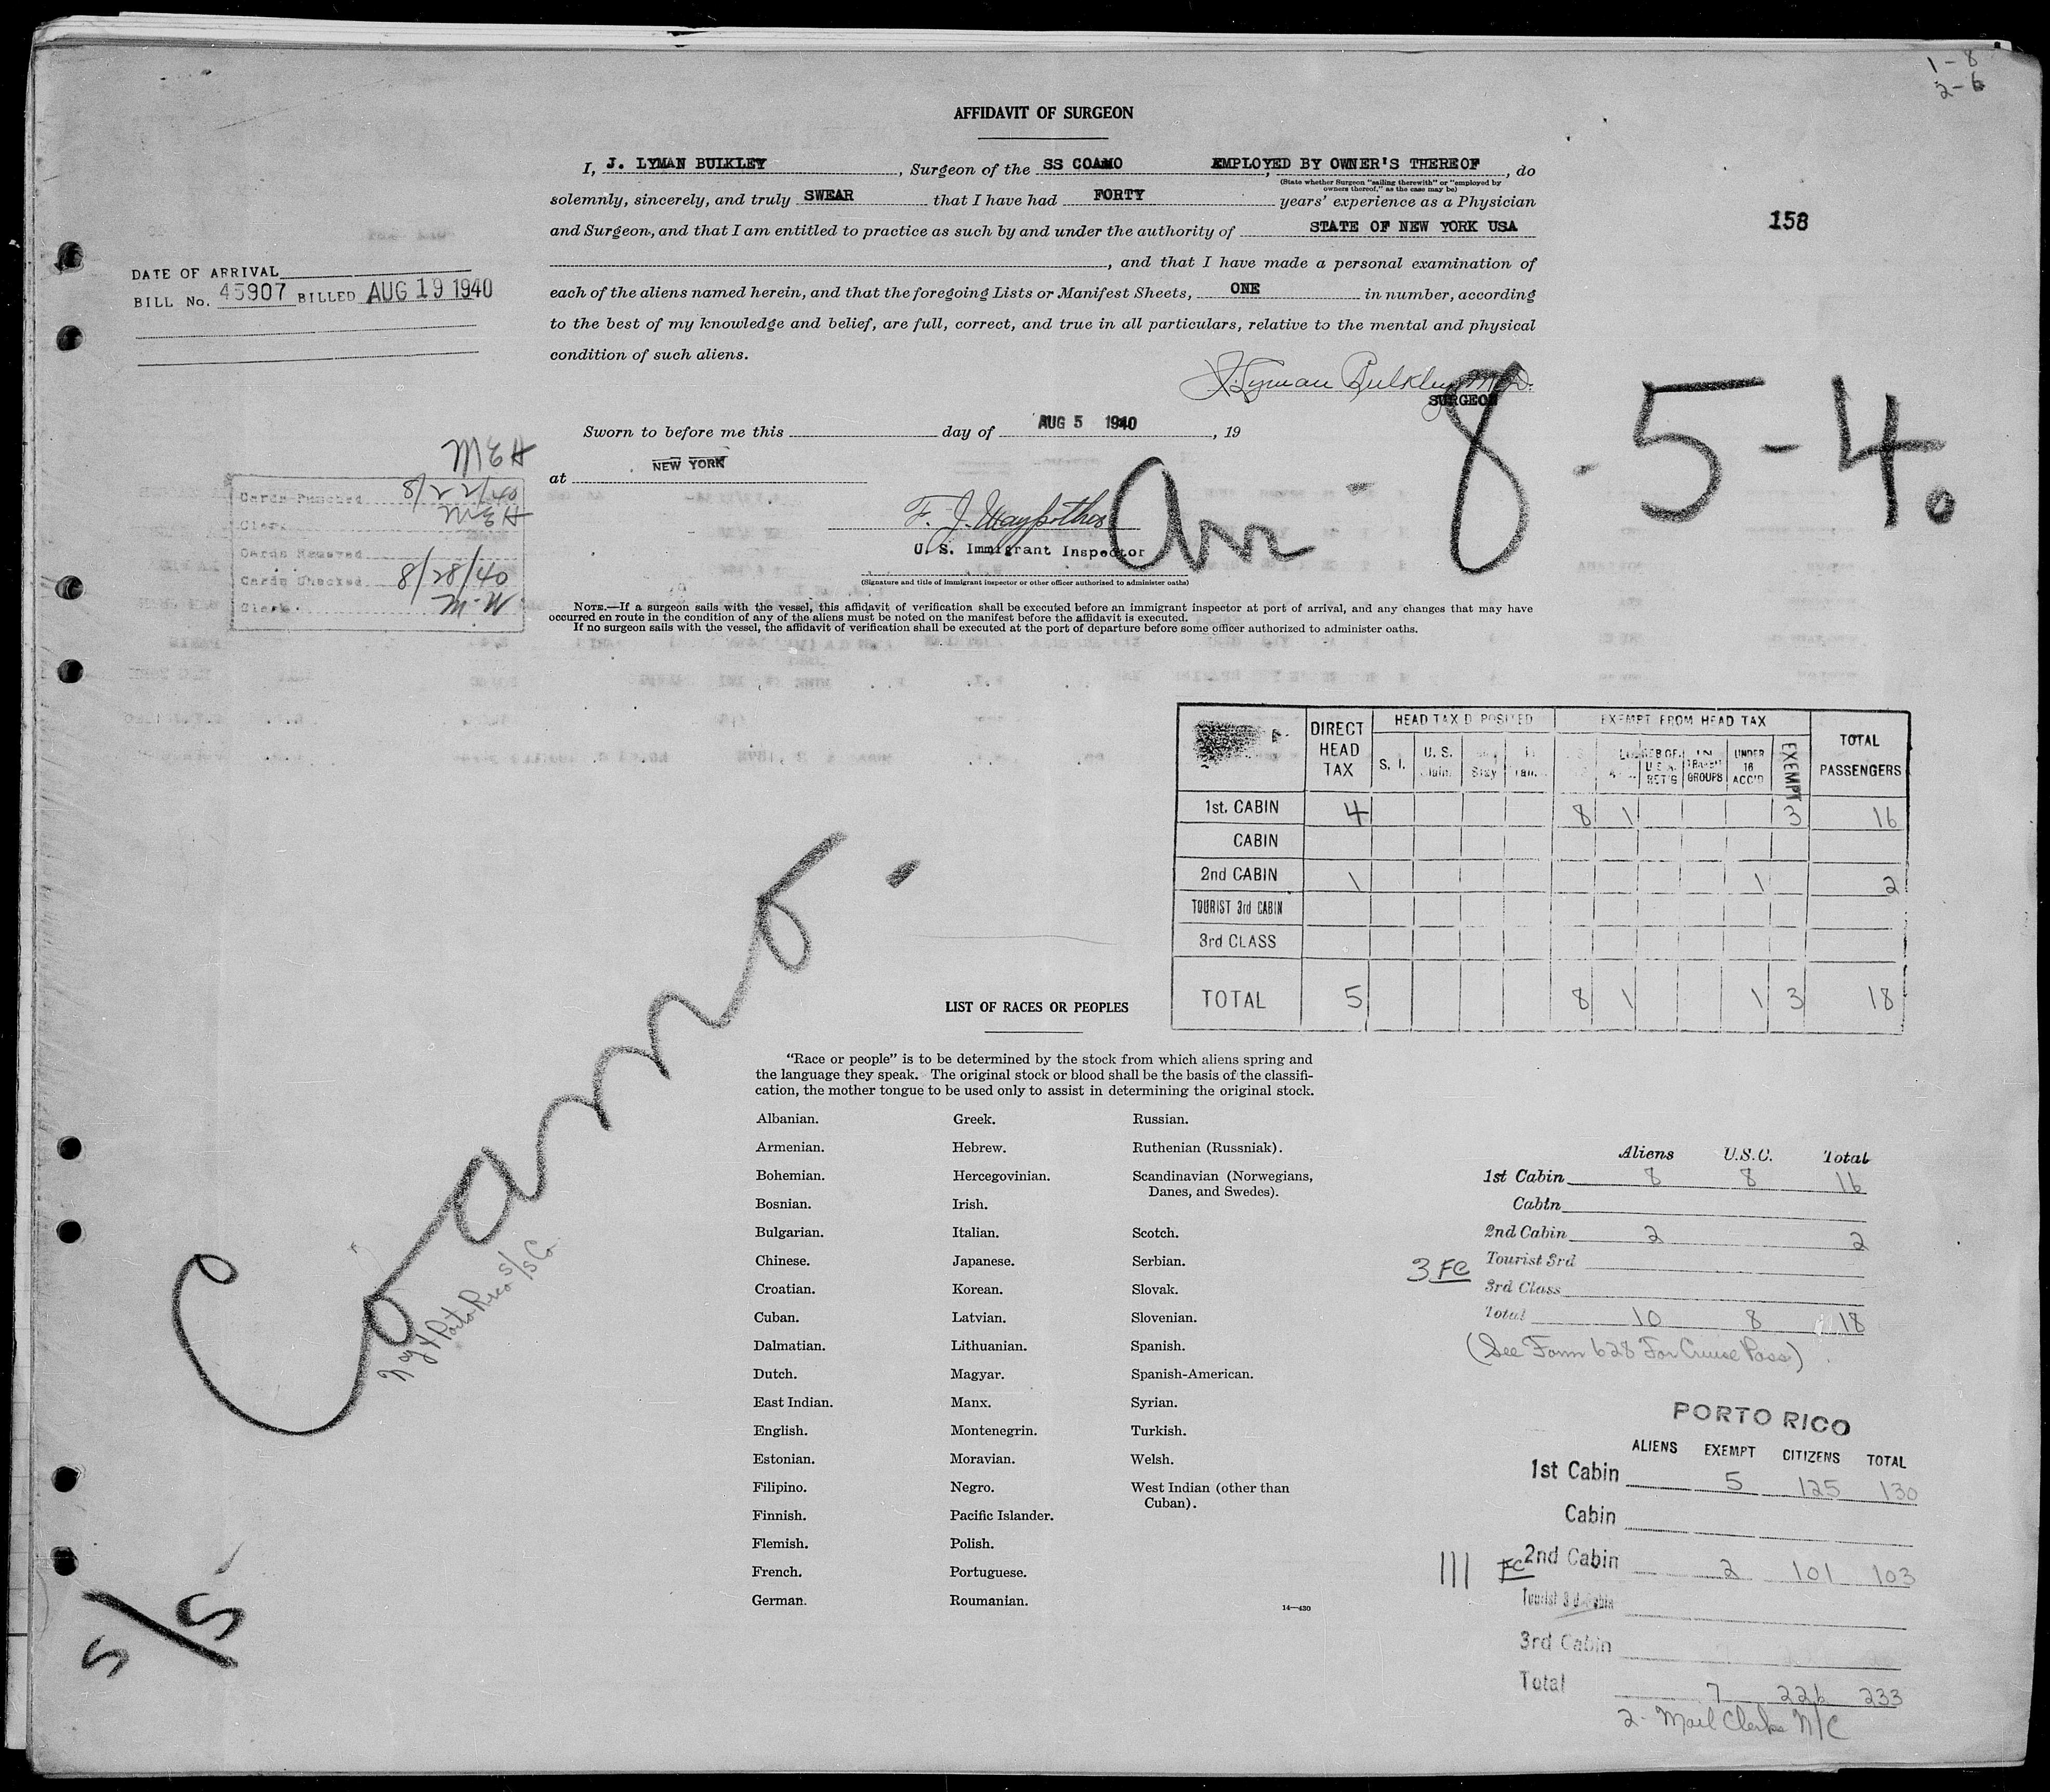 1-8
2-6
AFFIDAVIT OF SURGEON
I, J. LYMAN BULKLEY, Surgeon of the SS COAMO, EMPLOYED BY OWNER'S THEREOF, do
(State whether Surgeon "sailing therewith" or "employed by
owners thereof," as the case may be)
solemnly, sincerely, and truly SWEAR that I have had FORTY years' experience as a Physician
and Surgeon, and that I am entitled to practice as such by and under the authority of STATE OF NEW YORK USA
, and that I have made a personal examination of
each of the aliens named herein, and that the foregoing Lists or Manifest Sheets, ONE in number, according
to the best of my knowledge and belief, are full, correct, and true in all particulars, relative to the mental and physical
condition of such aliens.
158
DATE OF ARRIVAL
BILL No. 45907 BILLED AUG 19 1940
J. Lyman Bulkley M.D.
SURGEON
Sworn to before me this day of AUG 5 1940, 19
at NEW YORK
F. J.
U. S. Immigrant Inspector
(Signature and title of immigrant inspector or other officer authorized to administer oaths)
Arr - 8 - 5 - 40
MEH
Cards Punched 8/22/40
Clerk MEH
Cards Removed
Cards Checked 8/28/40
Clerk M.W.
NOTE.—If a surgeon sails with the vessel, this affidavit of verification shall be executed before an immigrant inspector at port of arrival, and any changes that may have
occurred en route in the condition of any of the aliens must be noted on the manifest before the affidavit is executed.
If no surgeon sails with the vessel, the affidavit of verification shall be executed at the port of departure before some officer authorized to administer oaths.
DIRECT HEAD TAX HEAD TAX D POSITED EXEMPT FROM HEAD TAX TOTAL PASSENGERS
S. I. U. S. Stay UNDER 16 ACC'D EXEMPT
TRANSIT GROUPS
1st. CABIN 4 8 1 3 16
CABIN
2nd CABIN 1 1 2
TOURIST 3rd CABIN
3rd CLASS
TOTAL 5 8 1 1 3 18
S/S Coamo.
N.Y. & Porto Rico S/S Co
LIST OF RACES OR PEOPLES
"Race or people" is to be determined by the stock from which aliens spring and
the language they speak. The original stock or blood shall be the basis of the classifi-
cation, the mother tongue to be used only to assist in determining the original stock.
Albanian.
Armenian.
Bohemian.
Bosnian.
Bulgarian.
Chinese.
Croatian.
Cuban.
Dalmatian.
Dutch.
East Indian.
English.
Estonian.
Filipino.
Finnish.
Flemish.
French.
German.
Greek.
Hebrew.
Hercegovinian.
Irish.
Italian.
Japanese.
Korean.
Latvian.
Lithuanian.
Magyar.
Manx.
Montenegrin.
Moravian.
Negro.
Pacific Islander.
Polish.
Portuguese.
Roumanian.
Russian.
Ruthenian (Russniak).
Scandinavian (Norwegians,
Danes, and Swedes).
Scotch.
Serbian.
Slovak.
Slovenian.
Spanish.
Spanish-American.
Syrian.
Turkish.
Welsh.
West Indian (other than
Cuban).
14—430
Aliens U.S.C. Total
1st Cabin 8 8 16
Cabin
2nd Cabin 2 2
3 FC Tourist 3rd
3rd Class
Total 10 8 18
(See Form 628 For Cruise Pass)
PORTO RICO
ALIENS EXEMPT CITIZENS TOTAL
1st Cabin 5 125 130
Cabin
III FC 2nd Cabin 2 101 103
Tourist 3d Cabin
3rd Cabin
Total 7 226 233
2 - Mail Clerks N/C